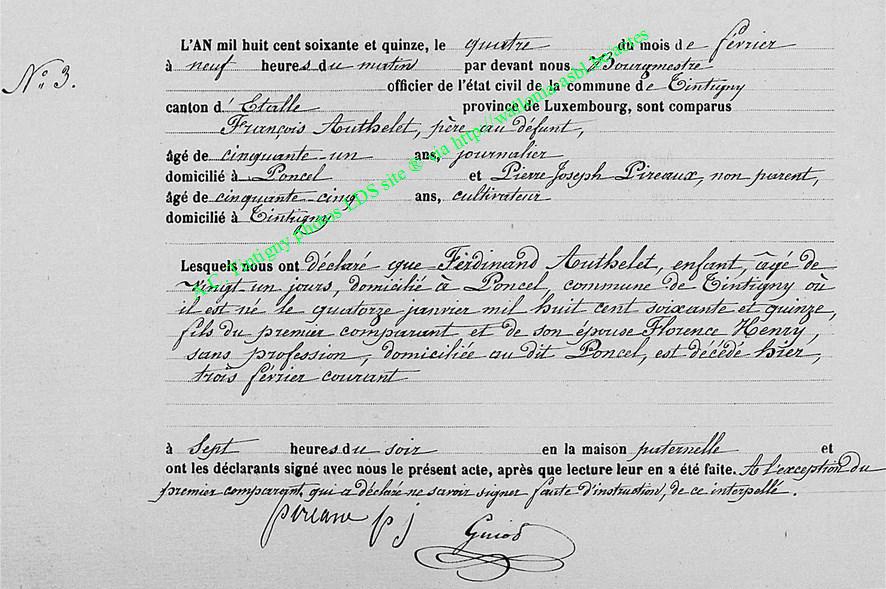 L'AN mil huit cent soixante et quinze, le quatre du mois de février
N° 3.
à neuf heures du matin par devant nous Bourgmestre
officier de l'état civil de la commune de Tintigny
canton d'Etalle province de Luxembourg, sont comparus
François Authelet, père au défunt,
âgé de cinquante-un ans, journalier
domicilié à Poncel et Pierre Joseph Pireaux, non parent,
âgé de cinquante-cinq ans, cultivateur
domicilié à Tintigny
Lesquels nous ont déclaré que Ferdinand Authelet, enfant, âgé de
vingt-un jours, domicilié à Poncel, commune de Tintigny où
il est né le quatorze janvier mil huit cent soixante et quinze,
fils du premier comparant et de son épouse Florence Henry,
sans profession, domiciliée au dit Poncel, est décédé hier,
trois février courant
à sept heures du soir en la maison paternelle et
ont les déclarants signé avec nous le présent acte, après que lecture leur en a été faite. A l'exception du
premier comparant, qui a déclaré ne savoir signer faute d'instruction, de ce interpellé.
pireaux pj
Guiod
A.C. Tintigny photos LDS site © via http://wallonia-asbl.be/actes